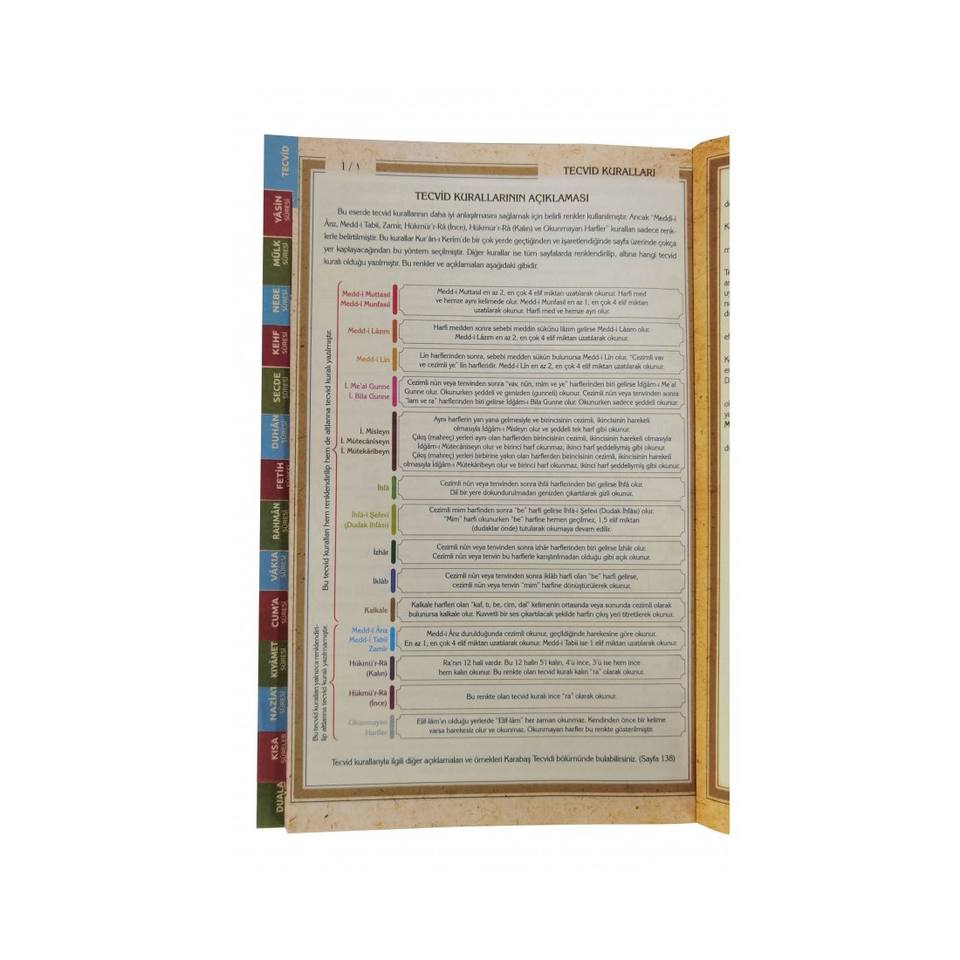 TECVİD
YÂSİN
SÛRESİ
MÜLK
SÛRESİ
NEBE
SÛRESİ
KEHF
SÛRESİ
SECDE
SÛRESİ
DUHÂN
SÛRESİ
FETİH
RAHMÂN
SÛRESİ
VÂKIA
SÛRESİ
CUM'A
SÛRESİ
KIYÂMET
SÛRESİ
NAZİAT
SÛRESİ
KISA
SÛRELER
DUALA
1/١
TECVİD KURALLARI
TECVİD KURALLARININ AÇIKLAMASI
Bu eserde tecvid kurallarının daha iyi anlaşılmasını sağlamak için belirli renkler kullanılmıştır. Ancak "Medd-i
Ârız, Medd-i Tabii, Zamir, Hükmü'r-Râ (İnce), Hükmü'r-Râ (Kalın) ve Okunmayan Harfler" kuralları sadece renk-
lerle belirtilmiştir. Bu kurallar Kur'ân-ı Kerim'de bir çok yerde geçtiğinden ve işaretlendiğinde sayfa üzerinde çokça
yer kaplayacağından bu yöntem seçilmiştir. Diğer kurallar ise tüm sayfalarda renklendirilip, altına hangi tecvid
kuralı olduğu yazılmıştır. Bu renkler ve açıklamaları aşağıdaki gibidir.
Bu tecvid kuralları hem renklendirilip hem de altlarına tecvid kuralı yazılmıştır.
Medd-i Muttasıl
Medd-i Munfasıl
Medd-i Muttasıl en az 2, en çok 4 elif miktarı uzatılarak okunur. Harfi med
ve hemze aynı kelimede olur. Medd-i Munfasıl en az 1, en çok 4 elif miktarı
uzatılarak okunur. Harfi med ve hemze ayrı olur.
Medd-i Lâzım
Harfi medden sonra sebebi meddin sükûnu lâzım gelirse Medd-i Lâzım olur.
Medd-i Lâzım en az 2, en çok 4 elif miktarı uzatılarak okunur.
Medd-i Lin
Lin harflerinden sonra, sebebi medden sükûn bulunursa Medd-i Lin olur. "Cezimli vav
ve cezimli ye" lin harfleridir. Medd-i Lin en az 2, en çok 4 elif miktarı uzatılarak okunur.
İ. Me'al Gunne
İ. Bila Gunne
Cezimli nûn veya tenvinden sonra "vav, nûn, mim ve ye" harflerinden biri gelirse İdğâm-ı Me'al
Gunne olur. Okunurken şeddeli ve genizden (gunneli) okunur. Cezimli nûn veya tenvinden sonra
"lam ve ra" harflerinden biri gelirse İdğâm-ı Bila Gunne olur. Okunurken sadece şeddeli okunur.
İ. Misleyn
İ. Mütecâniseyn
İ. Mütekâribeyn
Aynı harflerin yan yana gelmesiyle ve birincisinin cezimli, ikincisinin harekeli
olmasıyla İdğâm-ı Misleyn olur ve şeddeli tek harf gibi okunur.
Çıkış (mahreç) yerleri aynı olan harflerden birincisinin cezimli, ikincisinin harekeli olmasıyla
İdğâm-ı Mütecâniseyn olur ve birinci harf okunmaz, ikinci harf şeddeliymiş gibi okunur.
Çıkış (mahreç) yerleri birbirine yakın olan harflerden birincisinin cezimli, ikincisinin harekeli
olmasıyla İdğâm-ı Mütekâribeyn olur ve birinci harf okunmaz, ikinci harf şeddeliymiş gibi okunur.
İhfâ
Cezimli nûn veya tenvinden sonra ihfâ harflerinden biri gelirse İhfâ olur.
Dil bir yere dokundurulmadan genizden çıkartılarak gizli okunur.
İhfâ-i Şefevî
(Dudak İhfâsı)
Cezimli mim harfinden sonra "be" harfi gelirse İhfâ-i Şefevi (Dudak İhfâsı) olur.
"Mim" harfi okunurken "be" harfine hemen geçilmez, 1,5 elif miktarı
(dudaklar önde) tutularak okumaya devam edilir.
İzhâr
Cezimli nûn veya tenvinden sonra izhâr harflerinden biri gelirse İzhâr olur.
Cezimli nûn veya tenvin bu harflerle karıştırılmadan olduğu gibi açık okunur.
İklâb
Cezimli nûn veya tenvinden sonra iklâb harfi olan "be" harfi gelirse,
cezimli nûn veya tenvin "mim" harfine dönüştürülerek okunur.
Kalkale
Kalkale harfleri olan "kaf, tı, be, cim, dal" kelimenin ortasında veya sonunda cezimli olarak
bulunursa kalkale olur. Kuvvetli bir ses çıkartılacak şekilde harfin çıkış yeri titretilerek okunur.
Bu tecvid kuralları yalnızca renklendiri-
lip altlarına tecvid kuralı yazılmamıştır.
Medd-i Ârız
Medd-i Tabiî
Zamir
Medd-i Ârız durulduğunda cezimli okunur, geçildiğinde harekesine göre okunur.
En az 1, en çok 4 elif miktarı uzatılarak okunur. Medd-i Tabii ise 1 elif miktarı okunur.
Hükmü'r-Râ
(Kalın)
Ra'nın 12 hali vardır. Bu 12 halin 5'i kalın, 4'ü ince, 3'ü ise hem ince
hem kalın okunur. Bu renkte olan tecvid kuralı kalın "ra" olarak okunur.
Hükmü'r-Râ
(İnce)
Bu renkte olan tecvid kuralı ince "ra" olarak okunur.
Okunmayan
Harfler
Elif-lâm'ın olduğu yerlerde "Elif-lâm" her zaman okunmaz. Kendinden önce bir kelime
varsa harekesiz olur ve okunmaz. Okunmayan harfler bu renkte gösterilmiştir.
Tecvid kurallarıyla ilgili diğer açıklamaları ve örnekleri Karabaş Tecvidi bölümünde bulabilirsiniz. (Sayfa 138)